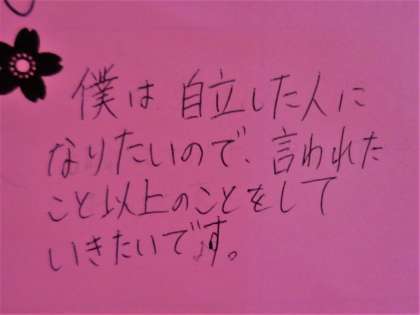 僕は自立した人に
なりたいので、言われた
こと以上のことをして
いきたいです。